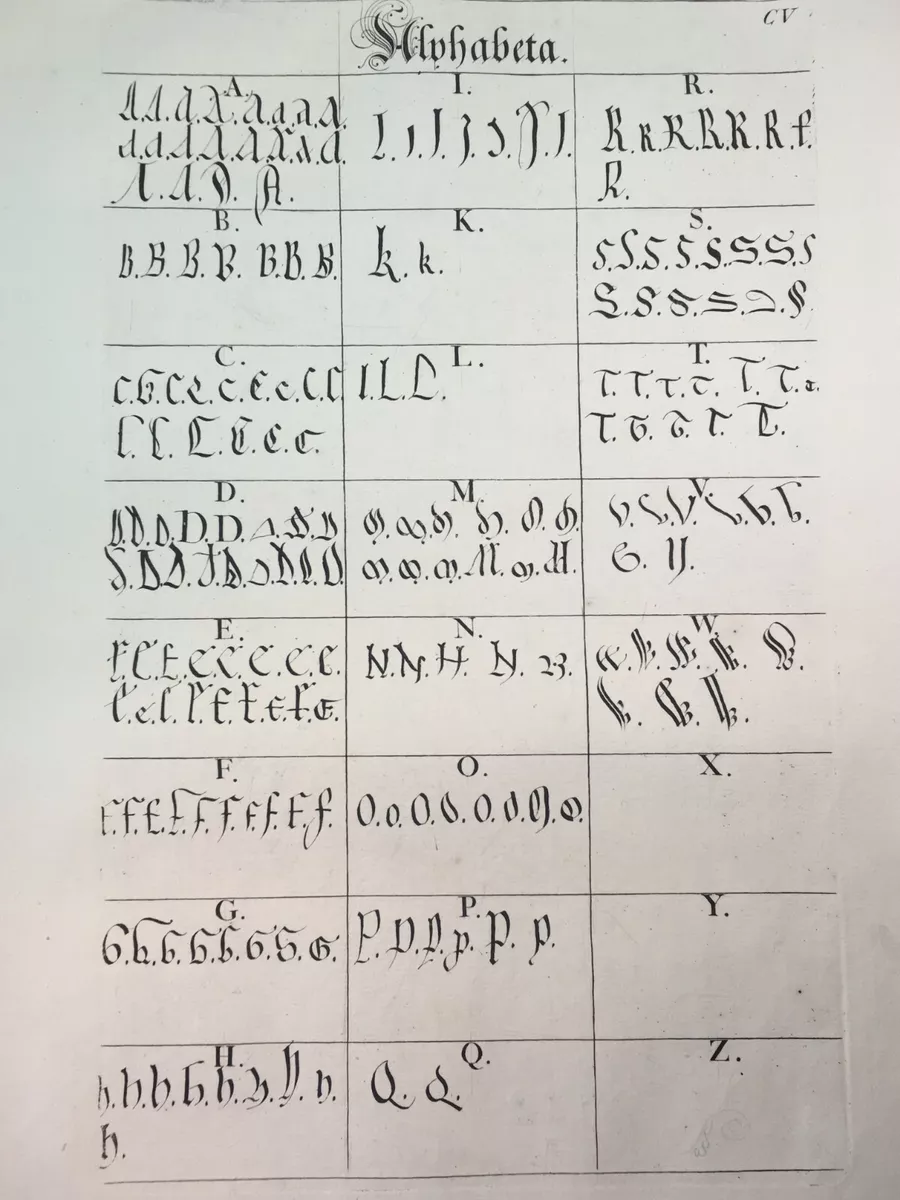 CV
Alphabeta.
A.
A.A.A.A.A.A.A.A.
A.A.A.A.A.A.A.A.
A.A.A.A.
B.
B.B.B.B.B.B.B.
C.
C.C.C.C.C.C.C.C.C
C.C.C.C.C.C.
D.
D.D.D.D.D.D.D.D
D.D.D.D.D.D.D.D.D
E.
E.E.E.E.E.E.E.E.
E.E.E.E.E.E.E.E.E.
F.
F.F.F.F.F.F.F.F.F.F.
G.
G.G.G.G.G.G.G.G.
H.
h.h.h.h.h.h.h.h.
h.
I.
I.I.I.I.I.I.I.
K.
k.k.
L.
L.L.L.
M.
M.M.M.M.M.M.
M.M.M.M.M.M.
N.
N.N.N.N.N.
O.
O.o.O.O.O.O.O.O.
P.
P.P.P.P.P.P.
Q.
Q.Q.
R.
R.R.R.R.R.R.R.
R.
S.
S.S.S.S.S.S.S.S
S.S.S.S.S.S.
T.
T.T.T.T.T.T.T.
T.T.T.T.T.
V.
V.V.V.V.V.V.
V.V.
W.
W.W.W.W.W.
W.W.W.
X.
Y.
Z.